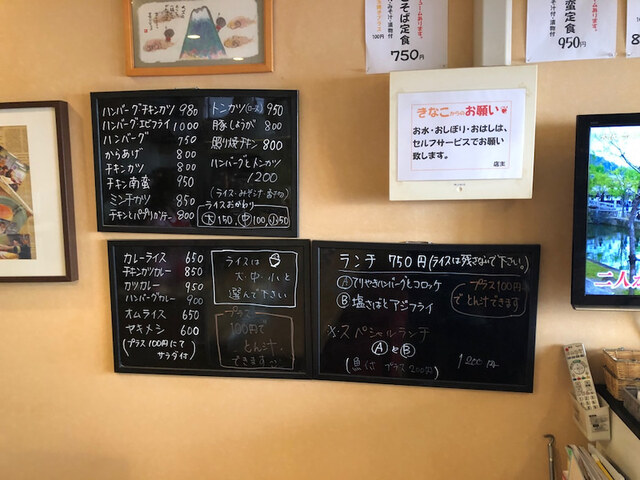 そば定食
750円
定食
950円
ハンバーグチキンカツ 980
ハンバーグ・エビフライ 1000
ハンバーグ 750
からあげ 800
チキンカツ 800
チキン南蛮 950
ミンチカツ 850
トンカツ(ロース) 950
豚しょうが 800
照り焼チキン 800
ハンバーグとトンカツ
1200
(ライス・みそ汁・
ライスおかわり
大150, 中100, 小50
きなこからのお願い
お水・おしぼり・おはしは、
セルフサービスでお願い
致します。
店主
カレーライス 650
チキンカツカレー 850
カツカレー 950
ハンバーグカレー 900
オムライス 650
ヤキメシ 600
(プラス100円にて
サラダ付)
ライスは
大・中・小と
選んで下さい
プラス
100円で
とん汁・
できます
ランチ 750円(ライスは残さないで下さい。)
Ⓐてりやきハンバーグとコロッケ
Ⓑ塩さばとアジフライ
プラス100円
でとん汁できます
スペシャルランチ
ⒶとⒷ
1200円
二人